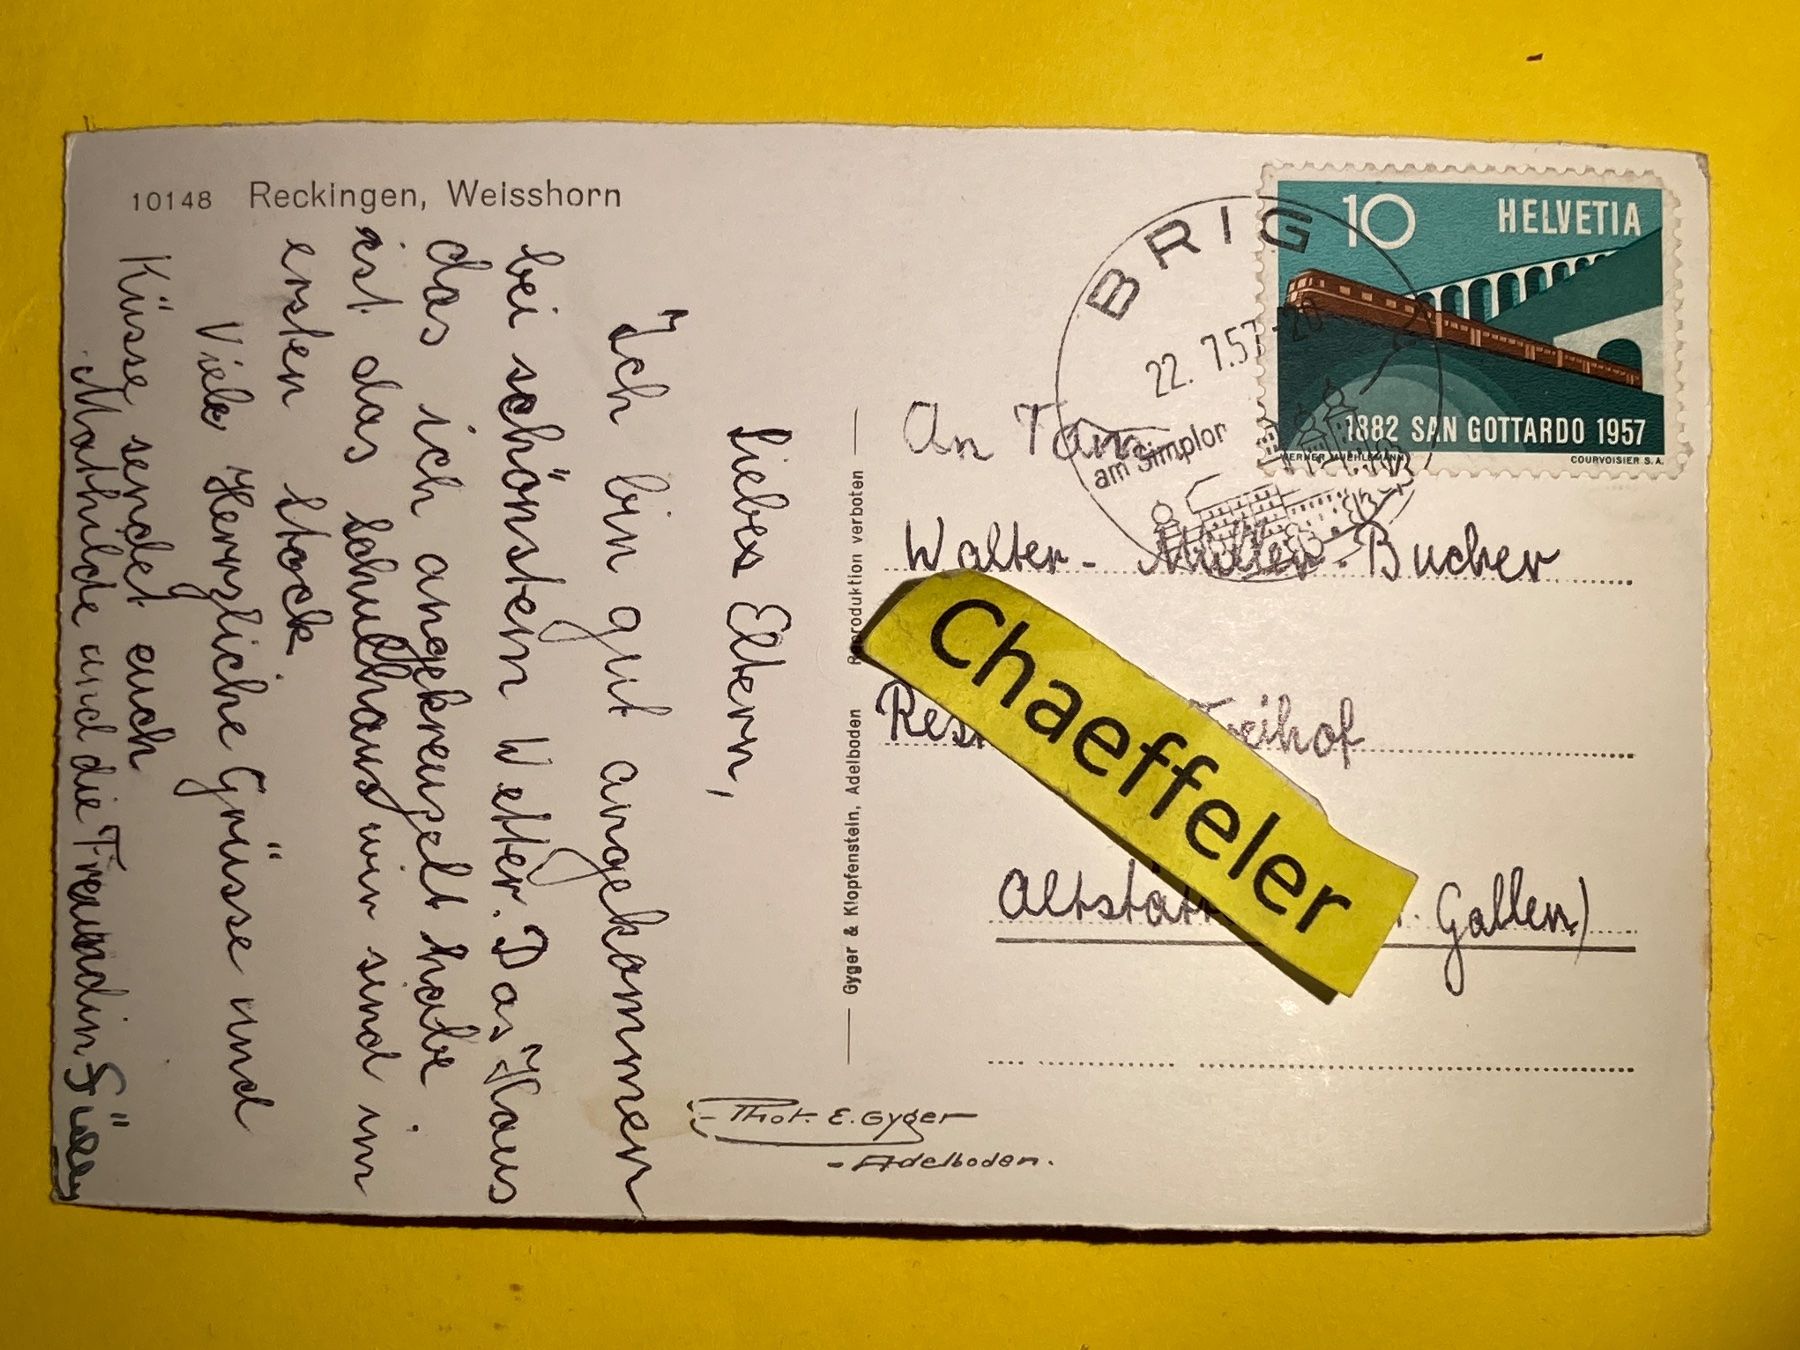 10148 Reckingen, Weisshorn
Liebex Eltern,
Ich bin gut angekommen
bei schönstem Wetter. Das Haus
das ich angekreuzelt habe
ist das Schulhaus wir sind im
ersten Stock
Viele Herzliche Grüsse und
Küsse sendet euch
Mathilde und die Freundin
Gyger & Klopfenstein, Adelboden Reproduktion verboten
Phot. E. Gyger
-Adelboden.
BRIG
22. 7.57-20
am Simplon
10 HELVETIA
1882 SAN GOTTARDO 1957
COURVOISIER S.A.
An Fam.
Walter-Müller-Bucher
Freihof
Gallen)
Chaeffeler